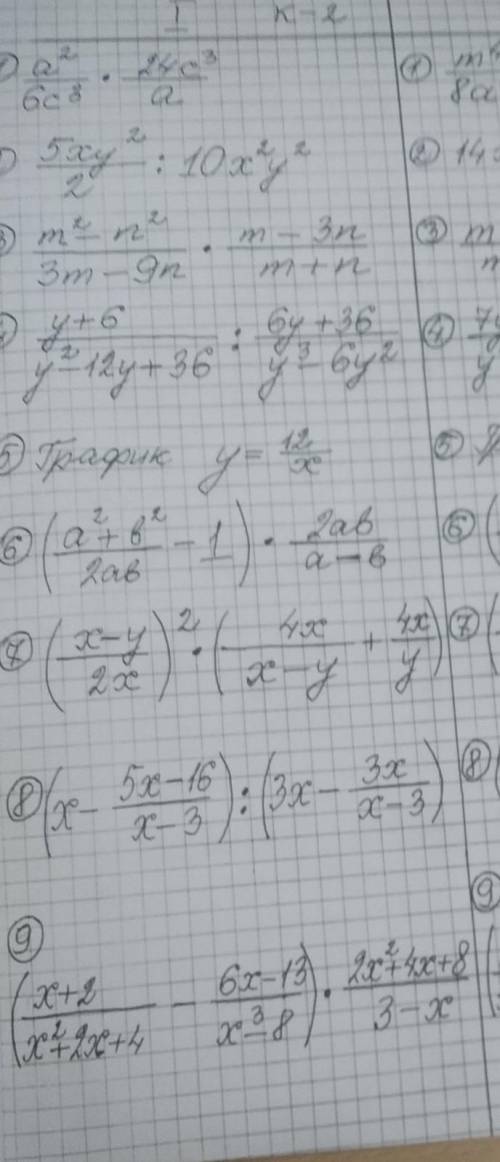 I К-2
① a²/6c³ · 24c³/a
② 5xy²/2 : 10x²y²
③ m²-n²/3m-9n · m-3n/m+n
④ y+6/y²-12y+36 : 6y+36/y³-6y²
⑤ График y = 12/x
⑥ (a²+b²/2ab - 1) · 2ab/a-b
⑦ (x-y/2x)² · (4x/x-y + 4x/y)
⑧ (x - 5x-16/x-3) : (3x - 3x/x-3)
⑨
(x+2/x²+2x+4 - 6x-13/x³-8) · 2x²+4x+8/3-x
①
8a
② 14
③ m
④ 7y
y
⑤
⑥ (
⑦ (
⑧ (
⑨
(